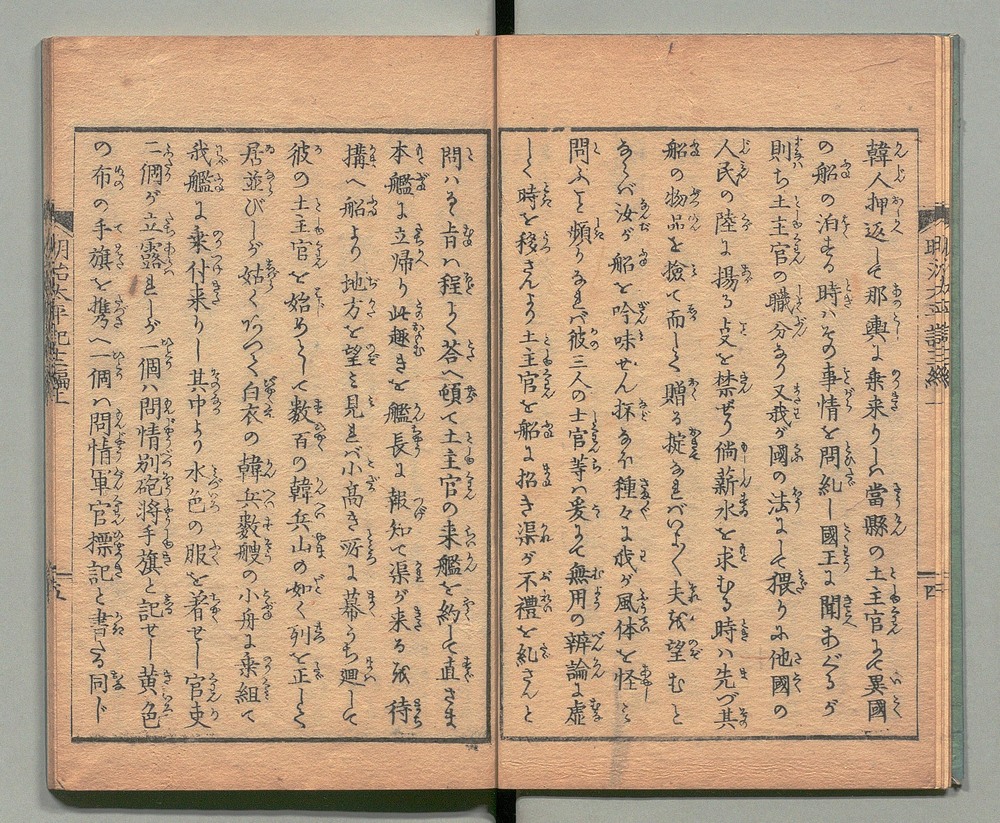 韓人押返して那輿に乗来りしハ當縣の土主官にて異國
の船の泊する時ハその事情を問糺し國王に聞あぐるが
則ち土主官の職分なり又我が國の法にて猥りに他國の
人民の陸に揚る支を禁ぜり倘薪水を求むる時ハ先づ其
船の物品を撿て而して贈る掟なれバいよ〳〵夫を望むと
ならバ汝が船を吟味せん抔なほ種々に我が風体を怪み
問ふこと頻りなれバ彼三人の士官等ハ爰にて無用の辨論に虚
しく時を移さんより土主官を船に招き渠が不禮を糺さんと
問ハるゝ㫖ハ程よく荅へ頓て土主官の来艦を約して直さま
本艦に立帰り此趣きを艦長に報知て渠が来るを待
搆へ船より地方を望み見れバ小高き所に幕うち廻して
彼の土主官を始めとして数百の韓兵山の如く列を正しく
居並びしが姑くありて白衣の韓兵數艘の小舟に乗組て
我艦に乗付来りし其中より水色の服を著せし官吏
二個が立露れしが一個ハ問情別砲将手旗と記せし黄色
の布の手旗を携へ一個ハ問情軍官標記と書たる同じ
明治太平記十二編上